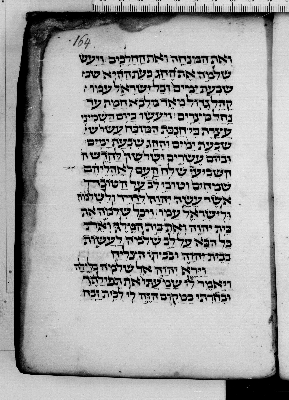 164.
ואת המנחה ואת החלבים ויעש
שלמה את החג בעת ההיא שב
שבעת ימים וכל ישראל עמו
קהל גדול מאד מלבא חמת עד
נחל מצרים ויעשו ביום השמיני
עצרת כי חנכת המזבח עשו ש
שבעת ימים והחג שבעת ימים
וביום עשרים ושלשה לחדש ה
השביעי שלח העם לאהליהם
שמחים וטובי לב על הטובה
אשר עשה יהוה לדויד ולשלמה
ולישראל עמו ויכל שלמה את
בית יהוה ואת בית המלך ואת
כל הבא על לב שלמה לעשות
בבית יהוה ובביתו הצליח
וירא יהוה אל שלמה בלילה
ויאמר לו שמעתי את תפלתך
ובחרתי במקום הזה לי לבית זבח